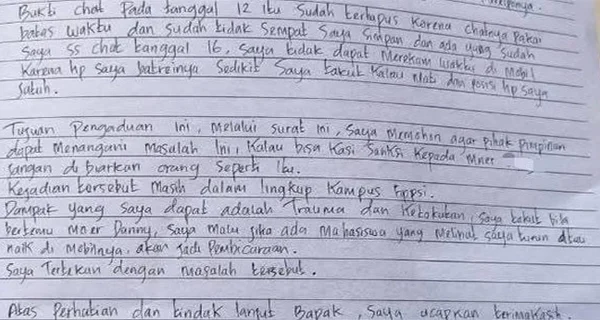 Bukti chat Pada tanggal 12 itu sudah terhapus karena chatnya Pakai
batas waktu dan sudah tidak sempat saya simpan dan ada yang sudah
saya ss chat tanggal 16, saya tidak dapat Merekam waktu di Mobil
Karena hp saya batreinya sedikit saya takut kalau Mati dan posisi hp saya
Jatuh.
Tujuan Pengaduan ini, Melalui surat ini, saya Memohon agar pihak pimpinan
dapat Menangani Masalah ini, Kalau bisa Kasi sanksi Kepada Mner
Jangan di biarkan orang seperti itu.
Kejadian tersebut Masih dalam lingkup Kampus
Dampak yang saya dapat adalah Trauma dan Ketakutan, saya takut bila
bertemu Mner Danny, saya malu jika ada Mahasiswa yang Melihat saya turun atau
naik di Mobilnya, akan jadi Pembicaraan.
Saya Tertekan dengan masalah tersebut.
Atas Perhatian dan tindak lanjut Bapak, saya ucapkan terimakasih.